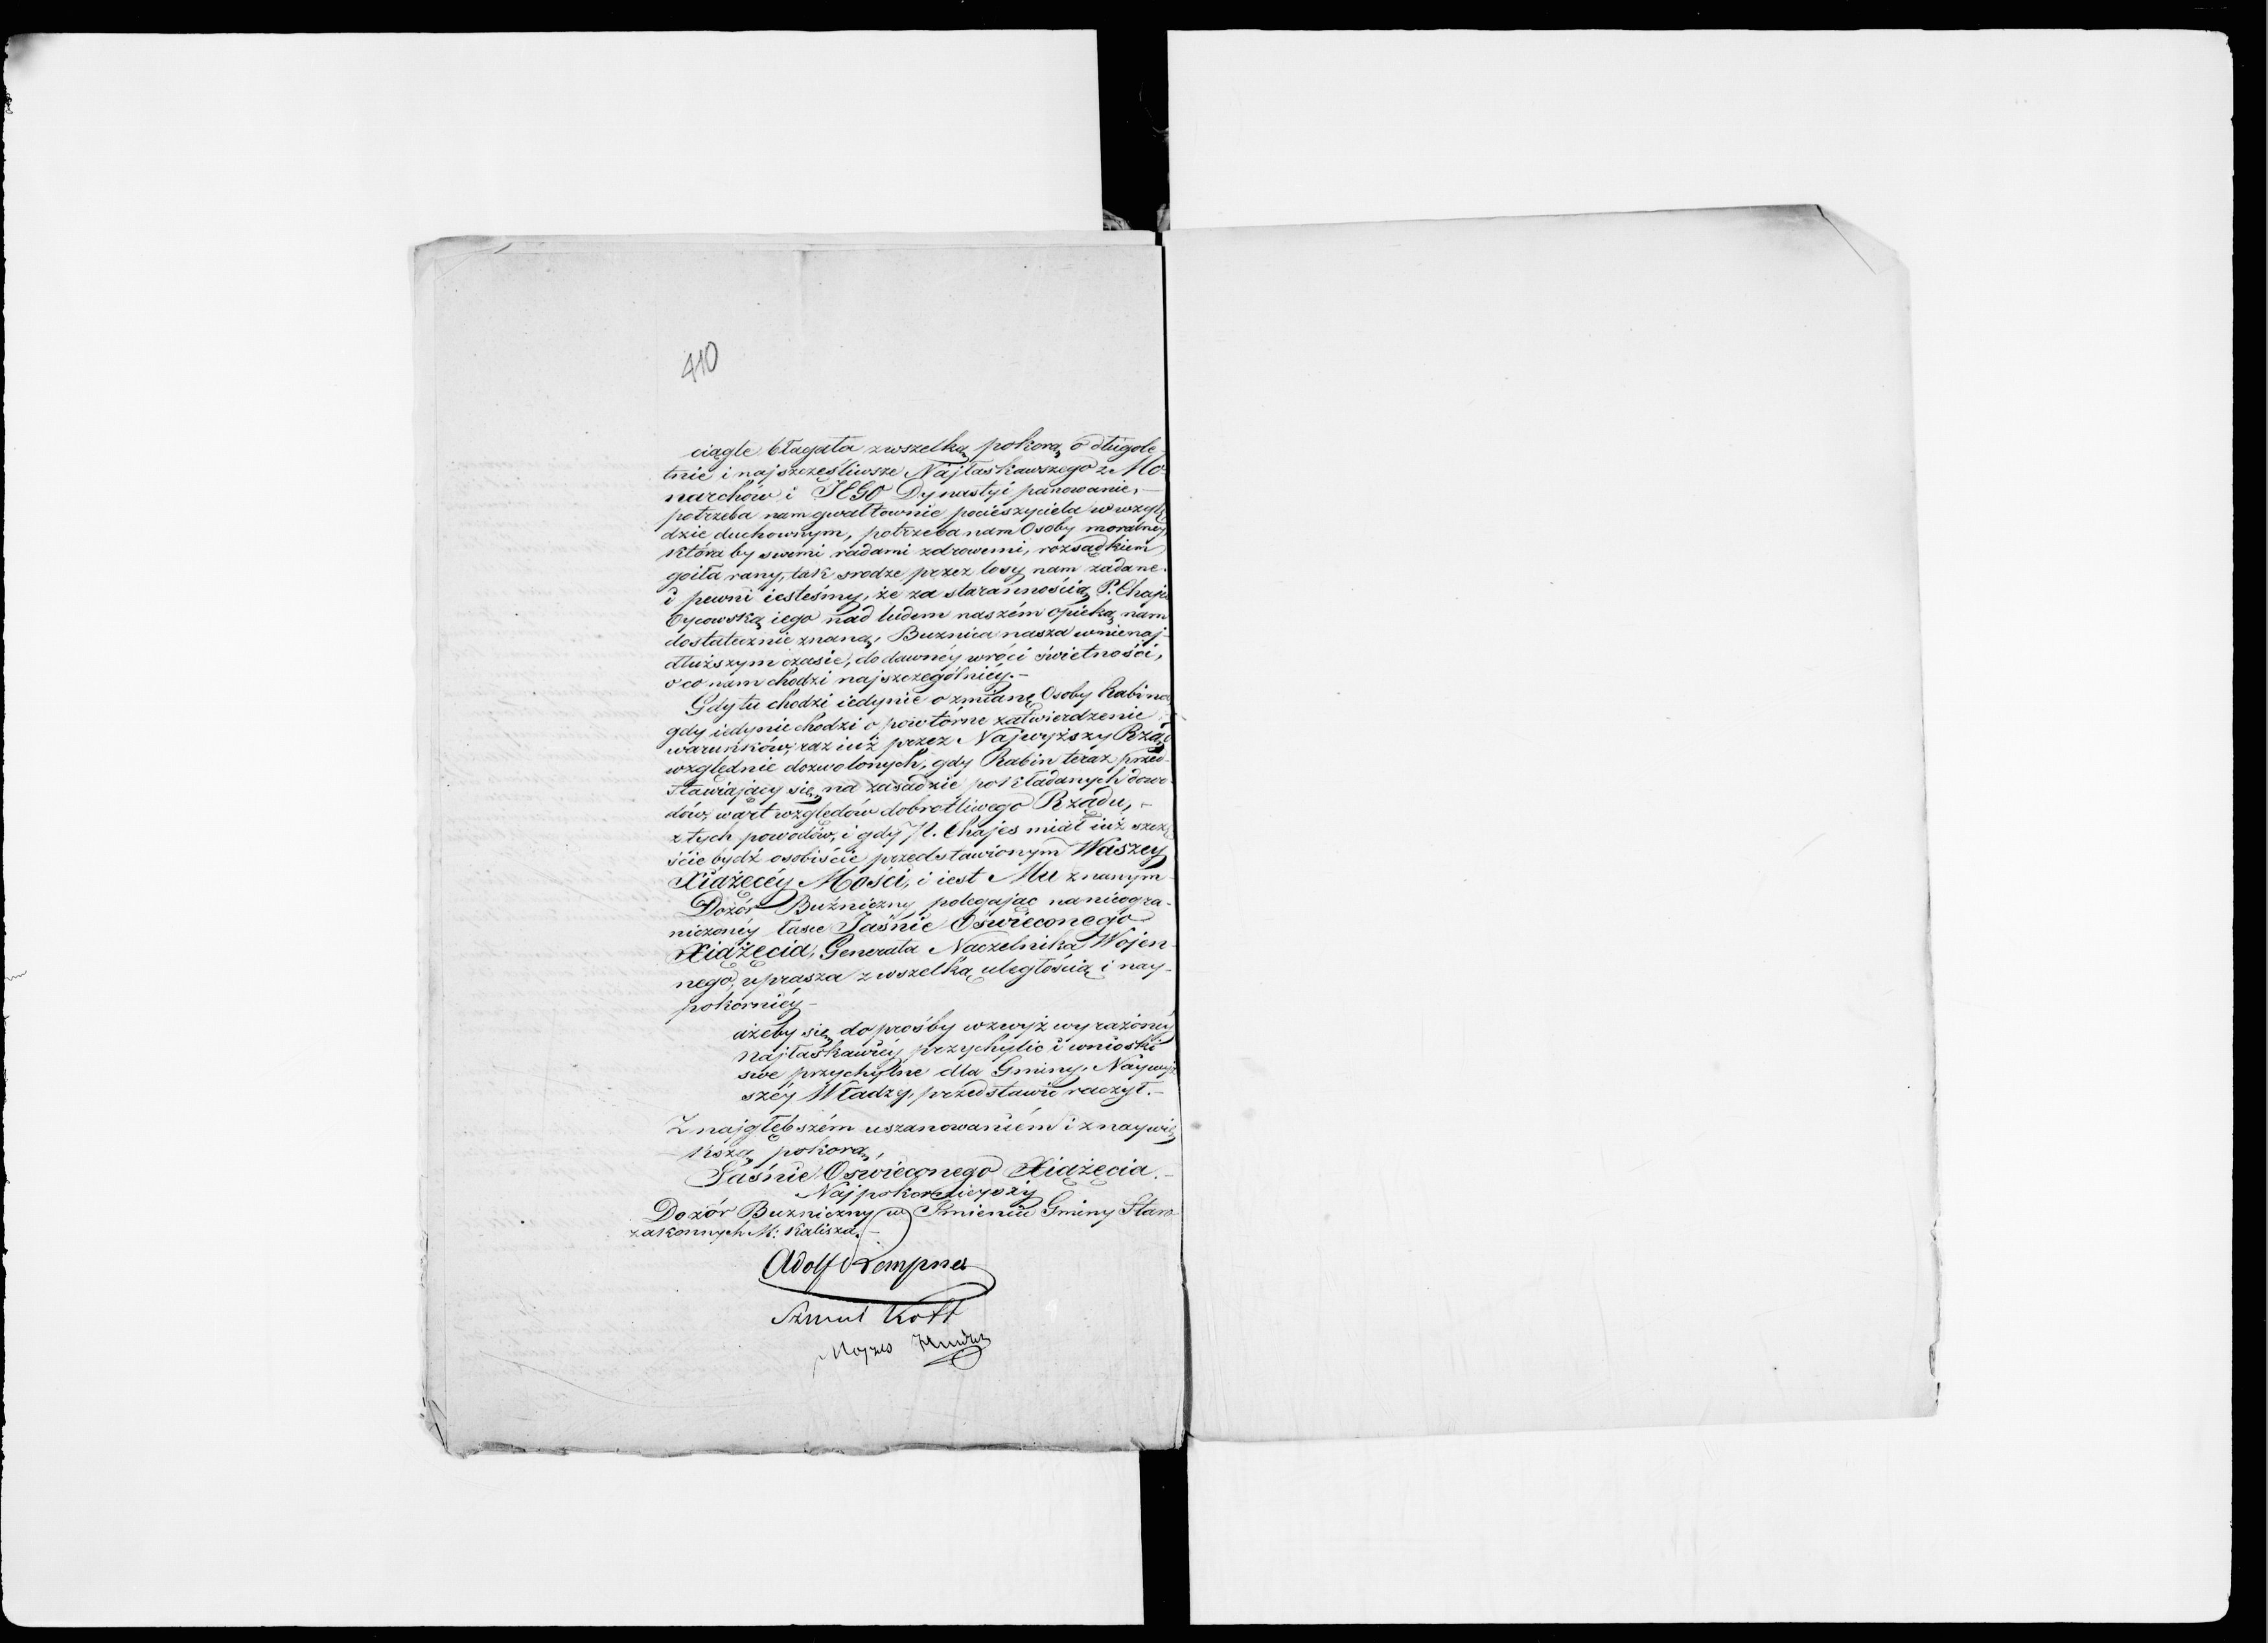 410
ciągle błagała z wszelką pokorą o długole-
tnie i najszczęśliwsze Najłaskawszego z Mo-
narchów i JEGO Dynastyi panowanie, -
potrzeba nam gwałtownie pocieszyciela w wzglę
dzie duchownym, potrzeba nam Osoby moralnéy,
która by swemi radami zdrowemi, rozsądkiem
goiła rany, tak srodze przez losy nam zadane.
i pewni iesteśmy, że za starannością P. Chajes
Oycowską iego nad ludem naszém opieką nam
dostatecznie znaną, Buznica nasza w nienaj-
dłuższym czasie, do dawnéy wróci świetności,
o co nam chodzi najszczególniéy. -
Gdy tu chodzi iedynie o zmianę Osoby Rabina
gdy iedynie chodzi o powtórne zatwierdzenie
warunków, raz iuż przez Najwyższy Rząd
względnie dozwolonych, gdy Rabin teraz przed-
stawiający się, na zasadzie pokładanych dowo-
dów, wart względów dobrotliwego Rządu, -
z tych powodów, i gdy P. Chajes miał iuż szczę
ście bydź osobiście przedstawionym Waszey
Xiążęcéy Mości, i iest Mu znanym
Dozór Buźniczny polegając na nieogra-
niczonéy łasce Jaśnie Oświeconego
Xiążęcia, Generała Naczelnika Wojen-
nego, uprasza z wszelką uległością i nay-
pokorniéy -
ażeby się do prośby wzwyż wyrażonéy
najłaskawiéy przychylić i wnioski
swe przychylne dla Gminy, Naywyż
széy Władzy, przedstawić raczył. -
Z najgłębszém uszanowaniém i z naywię
kszą pokorą,
Jaśnie Oświeconego Xiążęcia. -
Najpokornieyszy
Dozór Buzniczny w Imieniu Gminy Staro
zakonnych M: Kalisza. -
Adolf
Szmul Kott
Moyzes